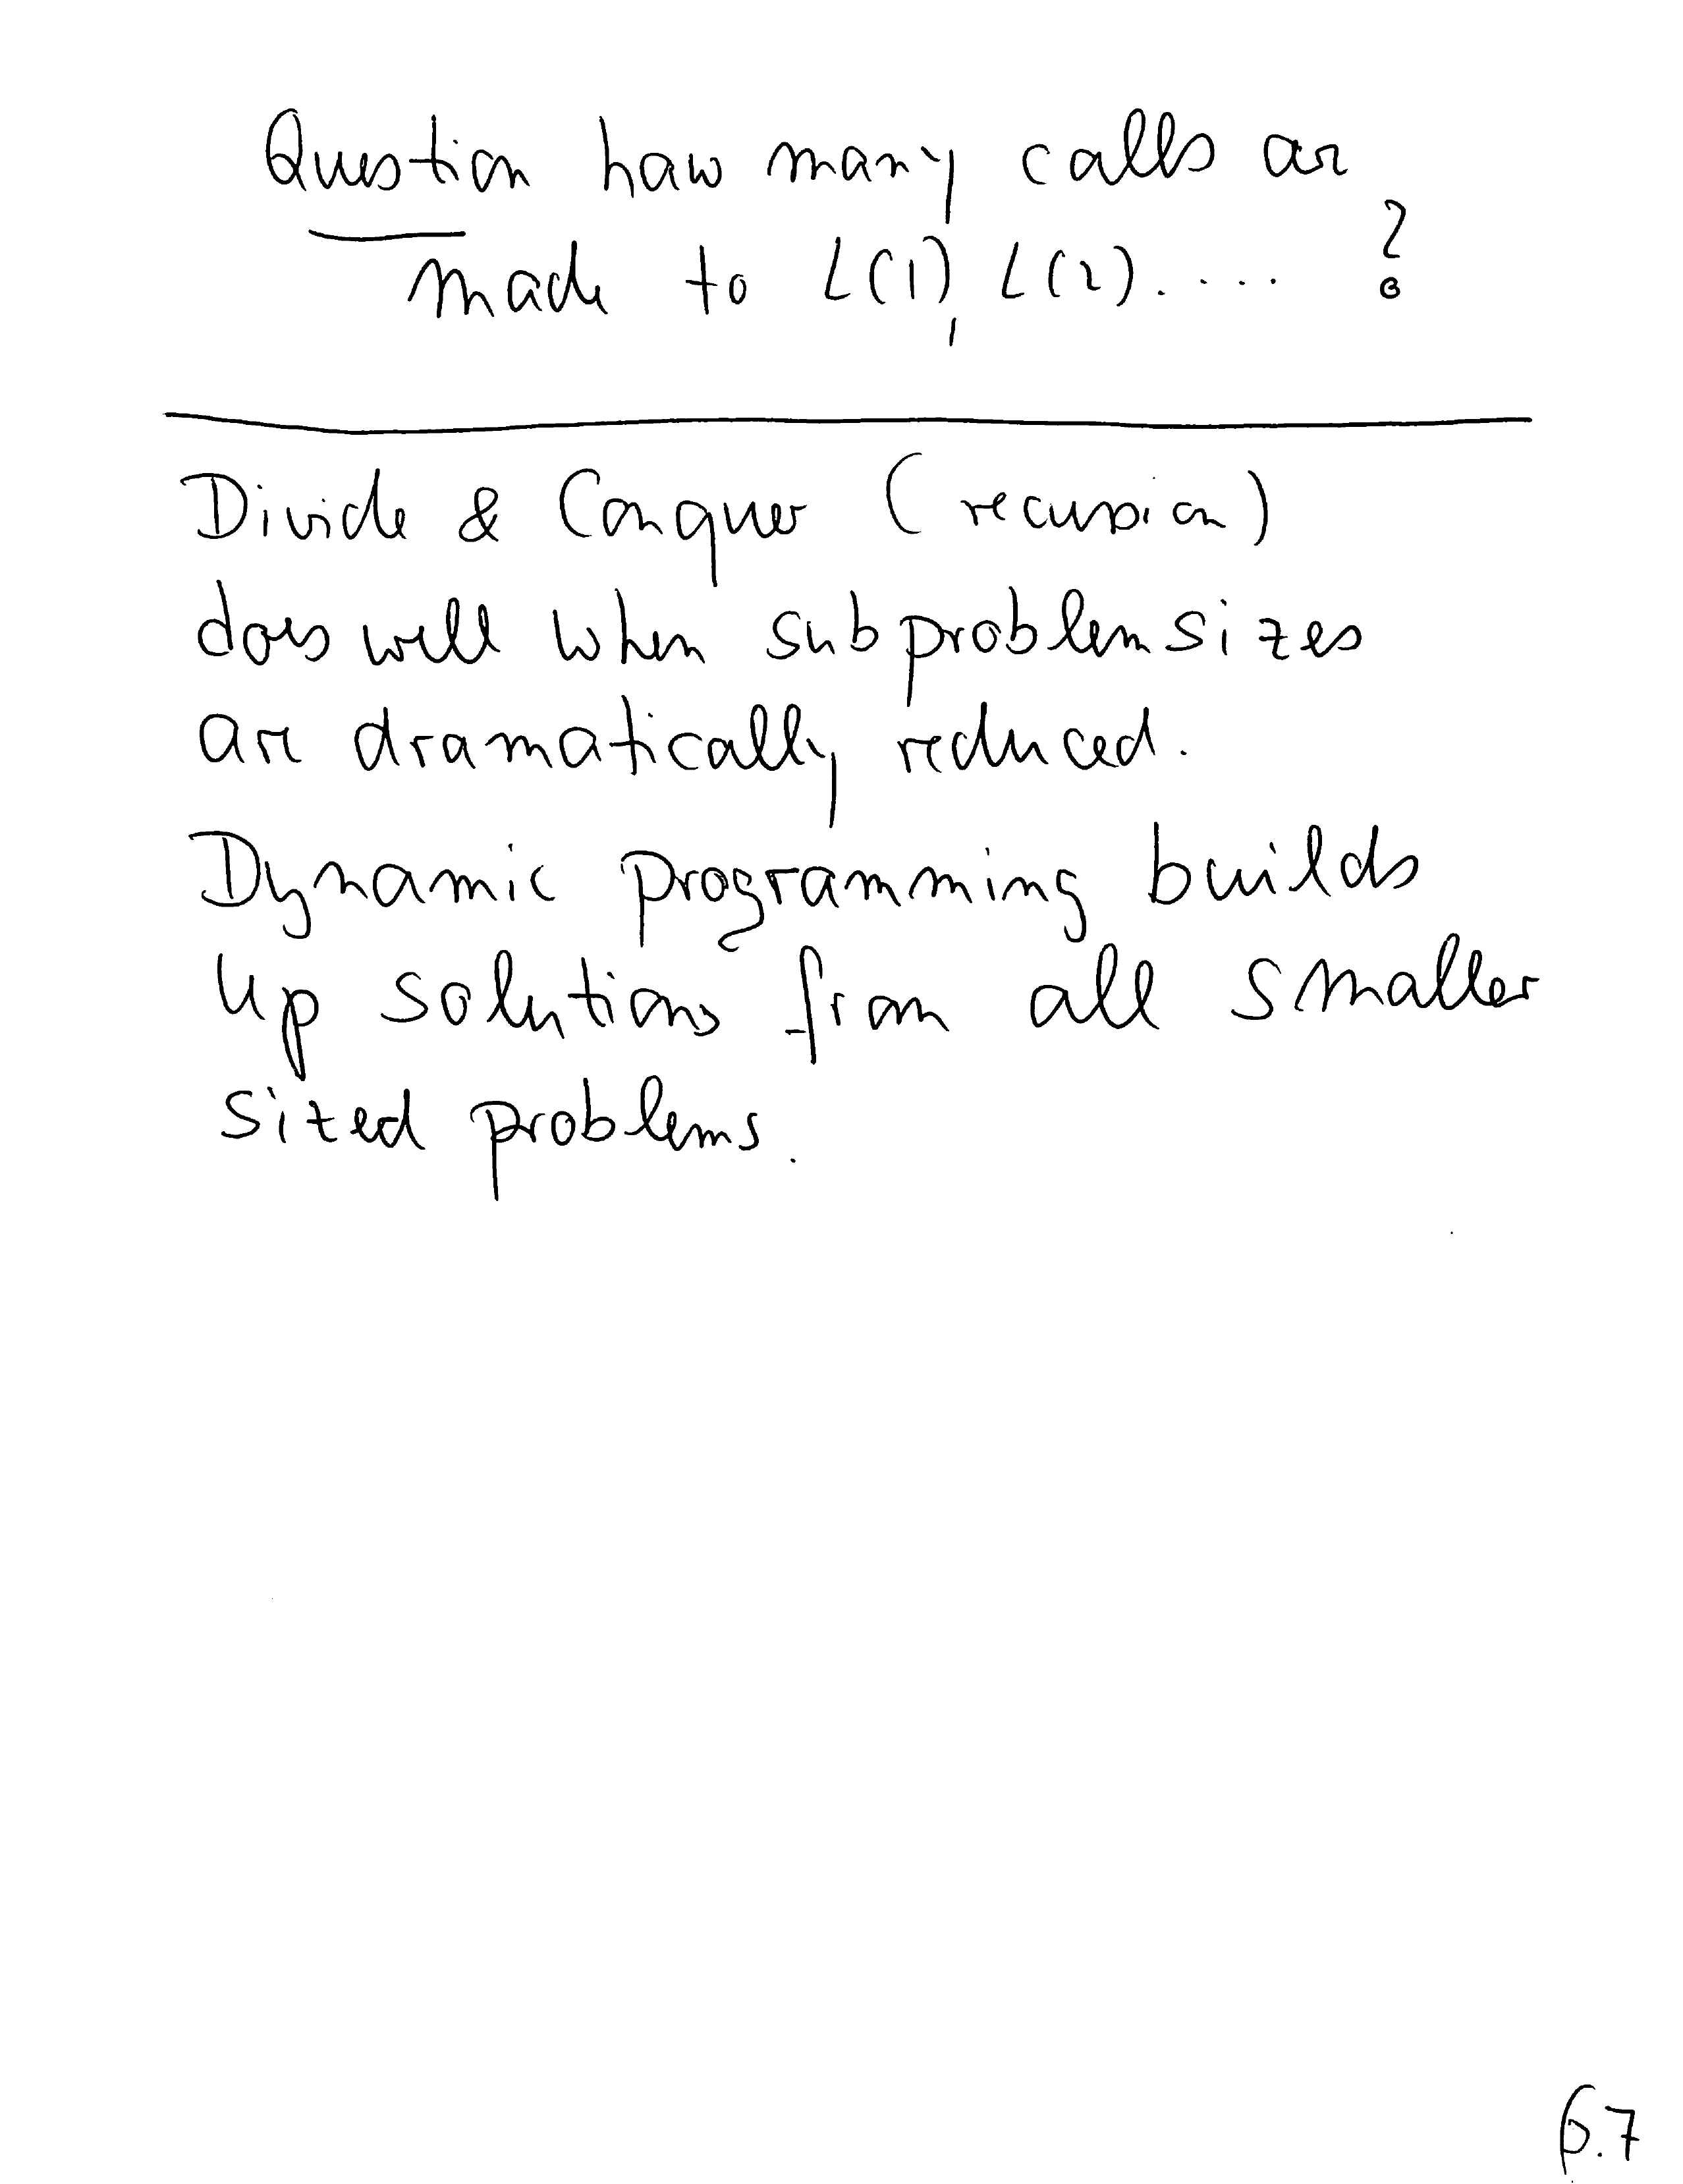 Question how many calls are
made to L(1), L(2)..... ?
Divide & Conquer (recursion)
does well when subproblem sizes
are dramatically reduced.
Dynamic programming builds
up solutions from all smaller
sized problems.
6.7